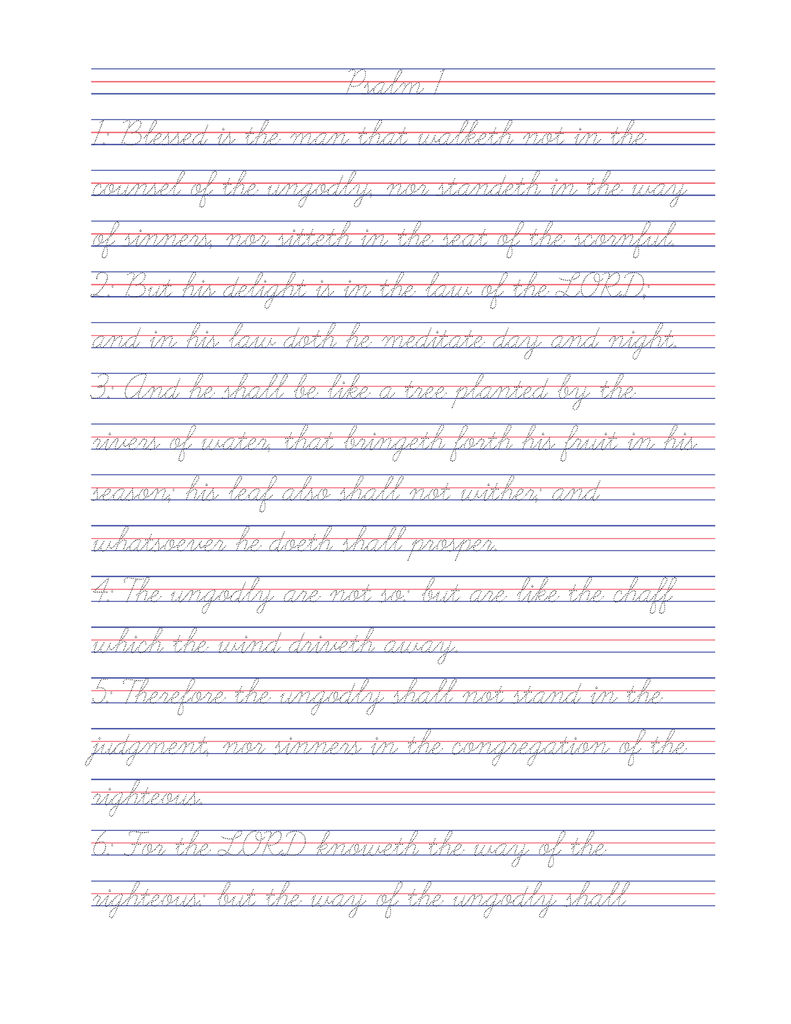 Psalm 1
1: Blessed is the man that walketh not in the
counsel of the ungodly, nor standeth in the way
of sinners, nor sitteth in the seat of the scornful.
2: But his delight is in the law of the LORD;
and in his law doth he meditate day and night.
3: And he shall be like a tree planted by the
rivers of water, that bringeth forth his fruit in his
season; his leaf also shall not wither; and
whatsoever he doeth shall prosper.
4: The ungodly are not so: but are like the chaff
which the wind driveth away.
5: Therefore the ungodly shall not stand in the
judgment, nor sinners in the congregation of the
righteous.
6: For the LORD knoweth the way of the
righteous: but the way of the ungodly shall